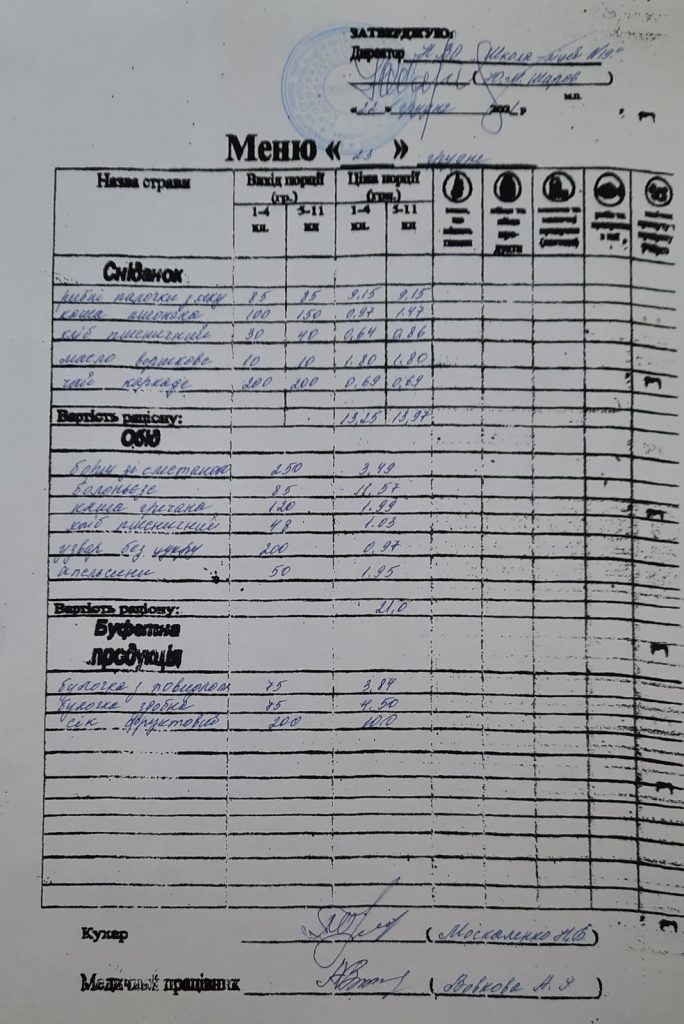 ЗАТВЕРДЖУЮ:
Директор Н.ВО "Школа №9"
( Ю.М. Шаров )
м.п.
« 22 » грудня р
Меню « 23 » грудня
Назва страви Вихід порції (гр.) Ціна порції (грн.)
1-4 кл. 5-11 кл 1-4 кл. 5-11 кл
Сніданок
рибні палочки з хеку 85 85 9,15 9,15
каша пшоняна 100 150 0,97 1,47
хліб пшеничний 30 40 0,64 0,86
масло вершкове 10 10 1.80 1.80
чай каркаде 200 200 0,69 0,69
Вартість раціону: 13,25 13,97
Обід
борщ зі сметаною 250 3,49
болоньєзе 85 11,57
каша гречана 120 1.99
хліб пшеничний 48 1.03
узвар без цукру 200 0,97
апельсини 50 1.95
Вартість раціону: 21,0
Буфетна
продукція
булочка з повидлом 75 3,84
булочка здобна 75 4.50
сік фруктовий 200 10.0
Кухар ( Москаленко Н.В. )
Медичний працівник ( Вовкова А. Я. )